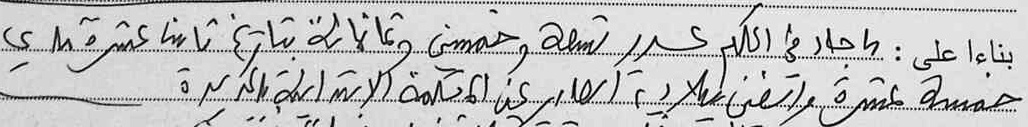 بناءا على : ما جاء في الحكم عدد تسعة وخمسين وثمانمائة بتاريخ ثامنا عشرة ماي
خمسة عشرة وألفين ميلادية الصادر عن المحكمة الابتدائية